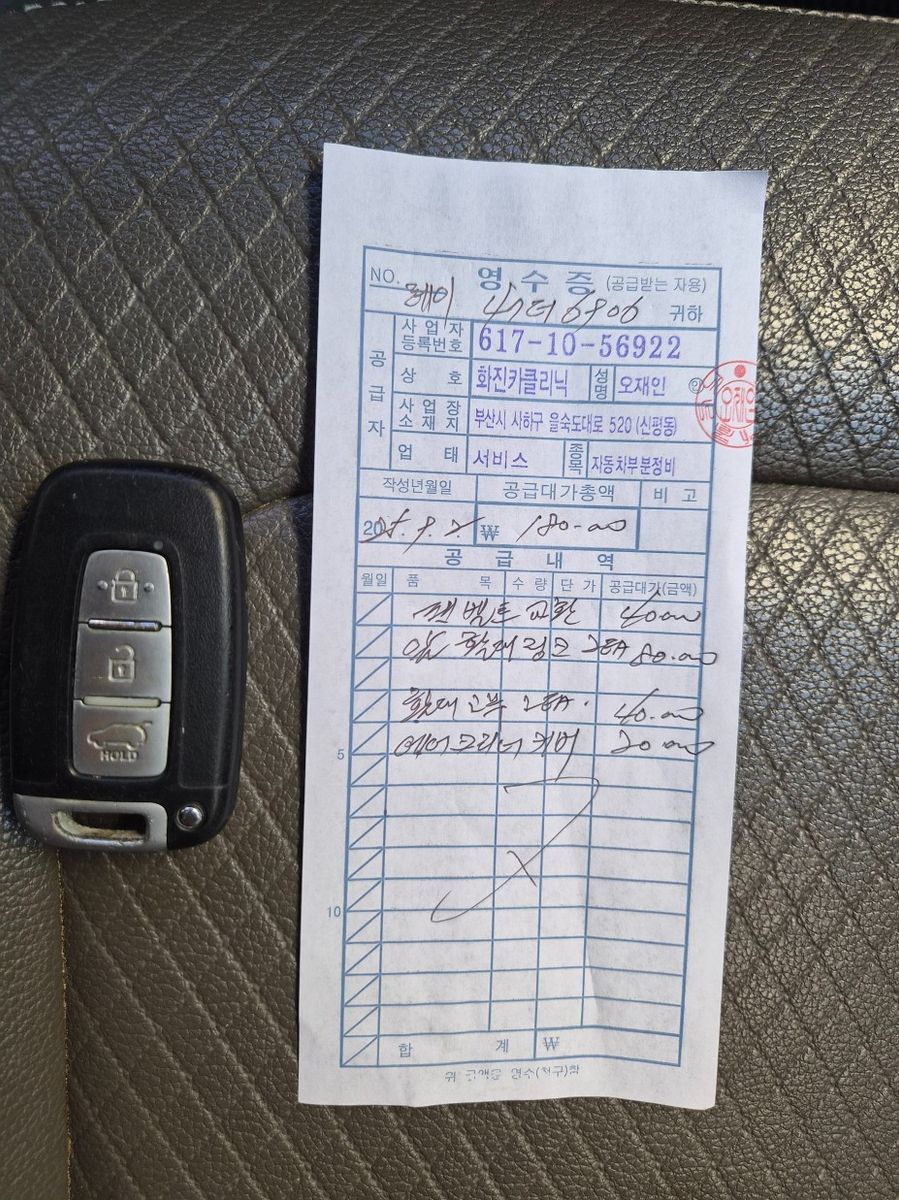 HOLD
NO. 영수증 (공급받는 자용)
레이 47더6906 귀하
공급자
사업자등록번호 617-10-56922
상호 화진카클리닉 성명 오재인 ㊞
사업장소재지 부산시 사하구 을숙도대로 520 (신평동)
업태 서비스 종목 자동차부분정비
작성년월일 공급대가총액 비고
₩ 180.000
공급내역
월일 품목 수량 단가 공급대가(금액)
팬벨트 교환 40000
앞 활대링크 2EA 80.000
활대고무 2EA. 40.000
에어크리너 커버 20000
5
10
합계 ₩